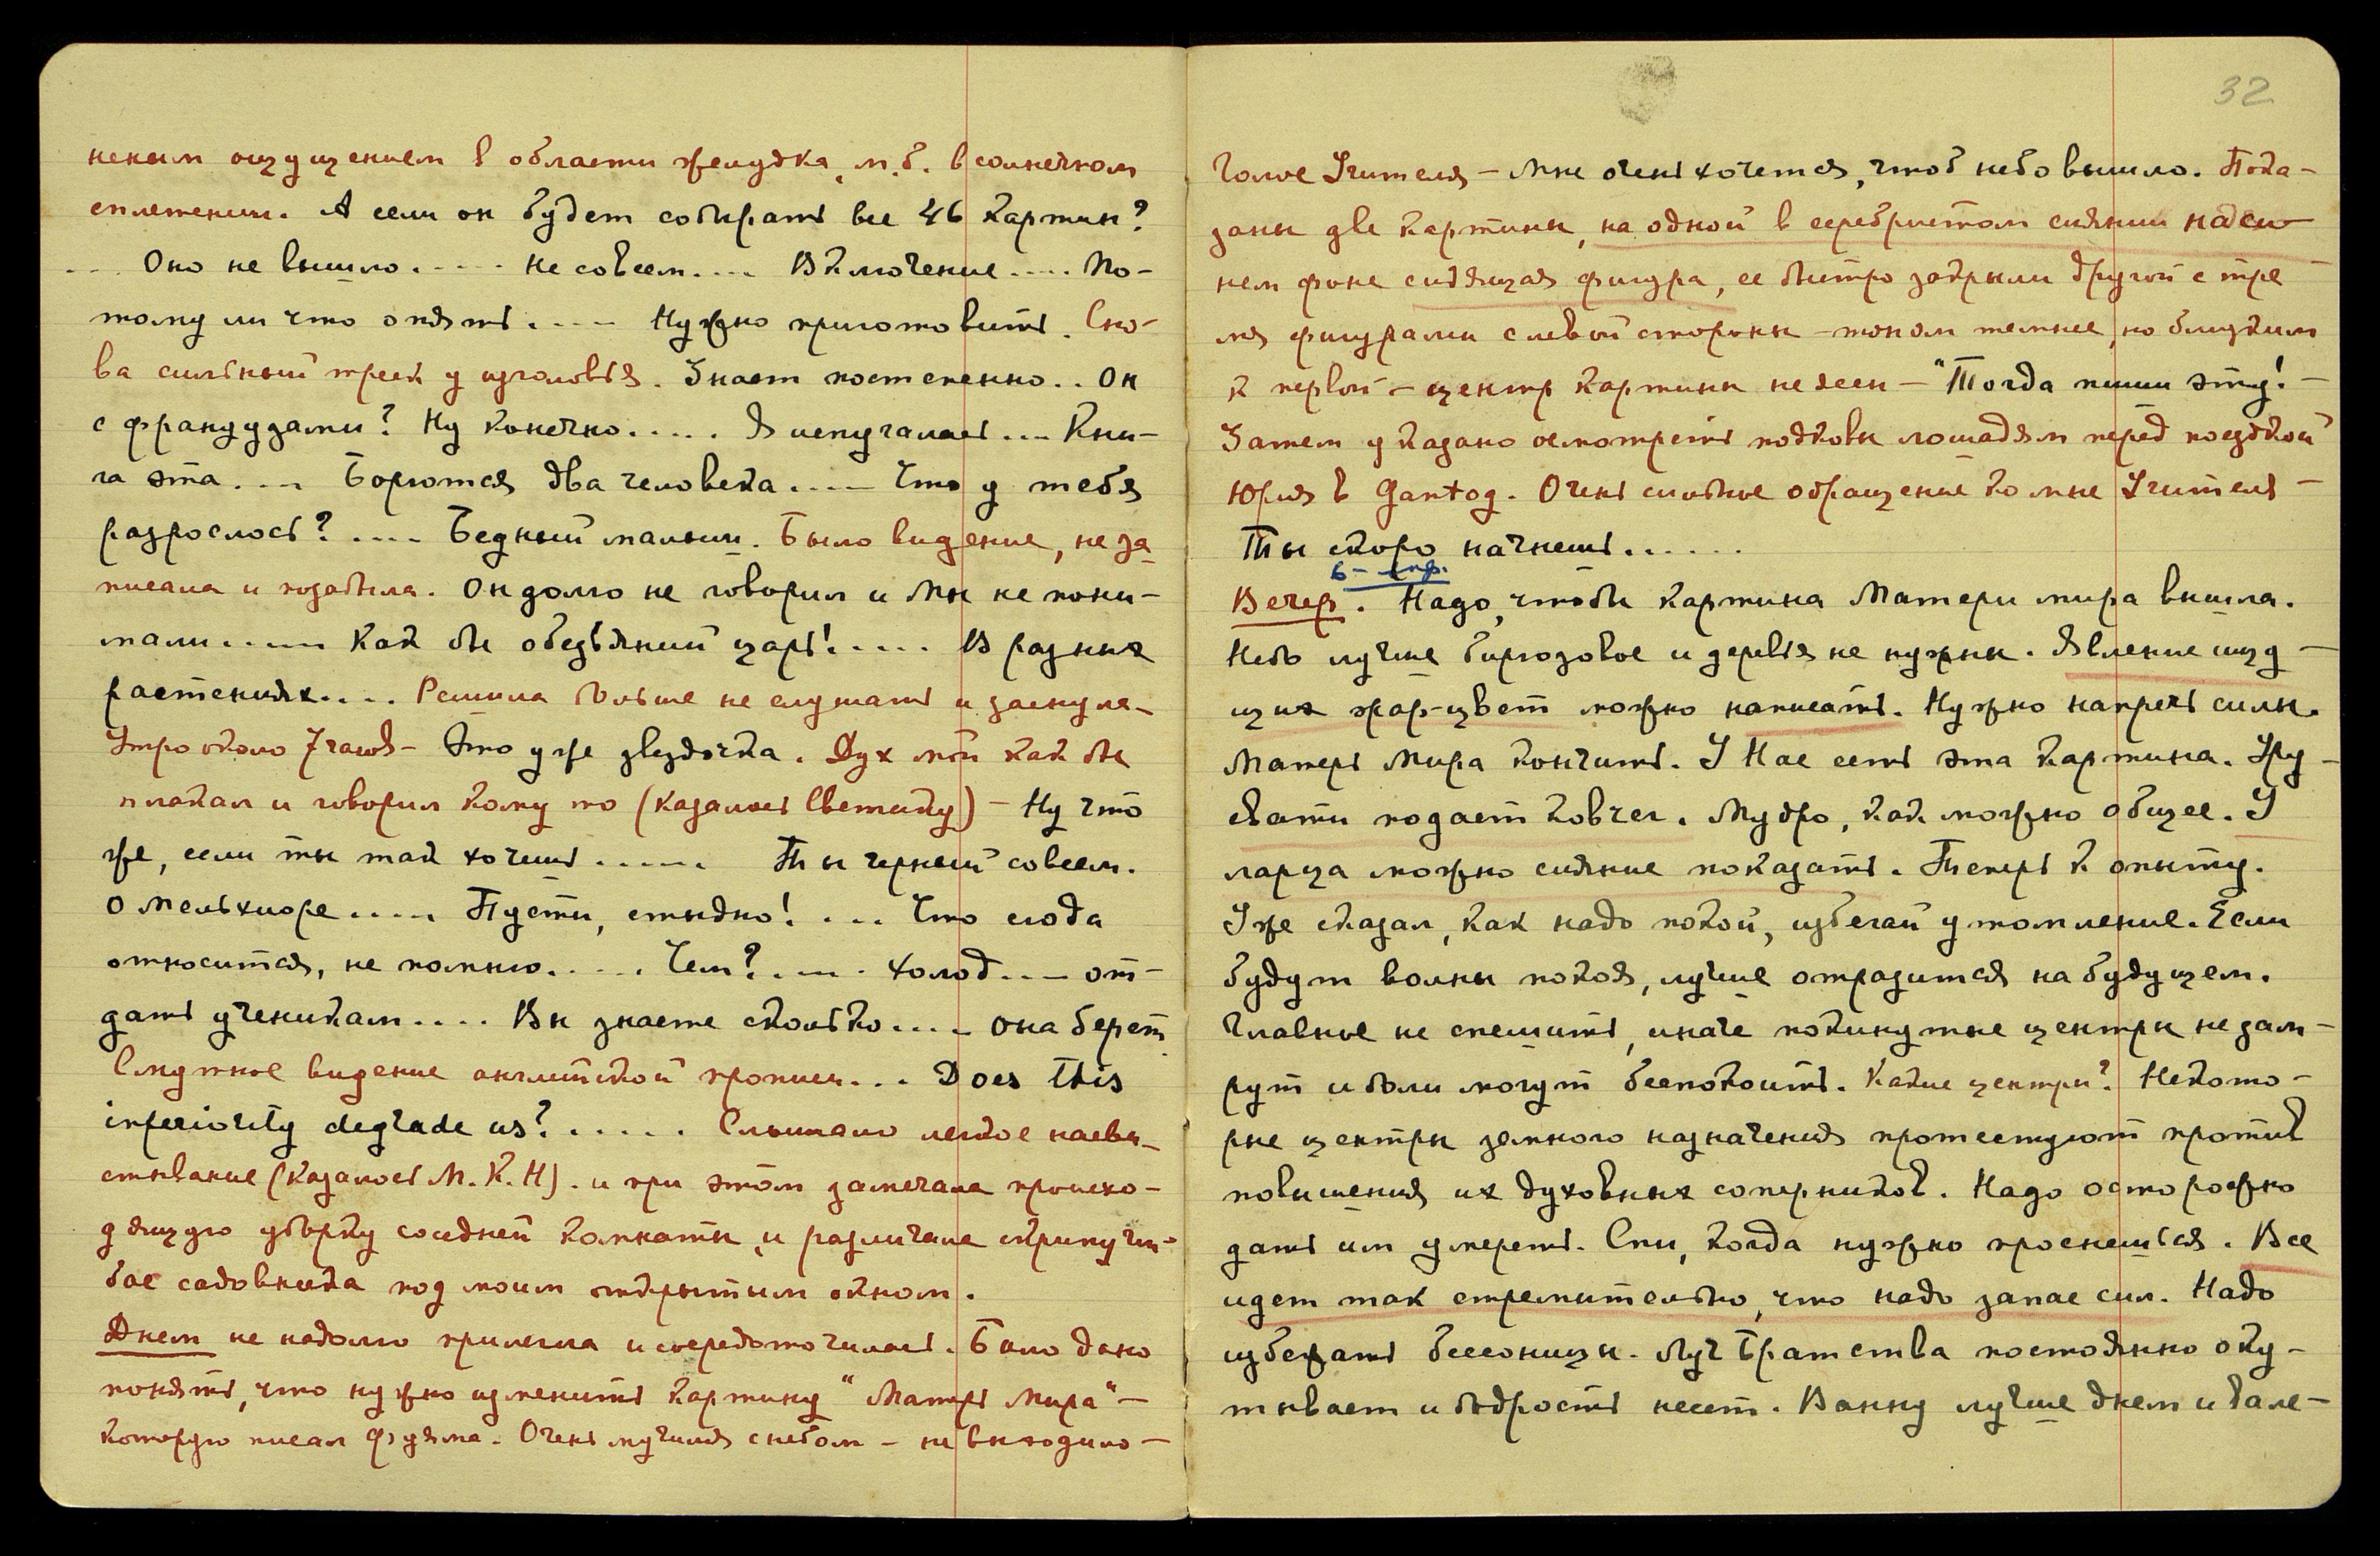 неным ощущением в области желудка, м.б. в солнечном
сплетении. А если он будет собирать все 46 картин?
... Оно не вышло..... не совсем.... Включение.... По-
тому ли что опять..... Нужно приготовить. Сно-
ва сильный треск у изголовья. Знает постепенно.. Он
с французами? Ну конечно..... Я испугалась... Кни-
га эта.... Борются два человека..... Что у тебя
разрослось? .... Бедный малыш. Было видение, не за
писала и позабыла. Он долго не говорил и мы не пони-
мали..... Как бы обезьяний царь!..... В разных
растениях.... Решила больше не слушать и заснула-
Утро около 7 часов - Это уже звездочка. Дух мой как бы
плакал и говорил кому то (казалось Светику) - Ну что
же, если ты так хочешь...... Ты черный совсем.
О Мельхиоре..... Пусти, стыдно! ... Что сюда
относится, не помню..... Чем?..... Холод.... от-
дать ученикам.... Вы знаете сколько.... она берет
Смутное видение английской прописи... Does this
inferiority degrade us?..... Слышало легкое насви-
стывание (казалось М.К.Н). и при этом замечала происхо-
дящую уборку соседней комнаты, и различала
садовника под моим открытым окном.
Днем не надолго прилегла и сосредоточилась. Было дано
понять, что нужно изменить картину "Матерь Мира" -
которую писал Фуяма. Очень мучился с небом - не выходило -
32
Голос Учителя - Мне очень хочется, чтоб небо вышло. Пока-
заны две картины, на одной в серебристом сиянии на си-
нем фоне сидящая фигура, ее быстро закрыли другой с тре
мя фигурами с левой стороны - тоном темнее, но близким
к первой - центр картины не ясен - "Тогда пиши эту! -
Затем указано осмотреть подковы лошадям перед поездкой
Юрия в Gantog. Очень сильное обращение ко мне Учителя -
Ты скоро начнешь......
6 - апр.
Вечер. Надо, чтобы картина Матери мира вышла.
Небо лучше бирюзовое и деревья не нужны. Явление ищу-
щих жар-цвет можно написать. Нужно напречь силы.
Матерь Мира кончить. У Нас есть эта картина. Уру-
свати подает ковчег. Мудро, как можно общее. У
ларца можно сияние показать. Теперь к опыту.
Уже сказал, как надо покой, избегай утомление. Если
будут волны покоя, лучше отразится на будущем.
Главное не спешить, иначе покинутые центры не зам-
рут и боли могут беспокоить. Какие центры? Некото-
рые центры земного назначения протестуют против
повышения их духовных соперников. Надо осторожно
дать им умереть. Спи, когда нужно проснешься. Все
идет так стремительно, что надо запас сил. Надо
избежать бессоницы. Луч Братства постоянно оку-
тывает и бодрость несет. Ванну лучше днем и вале-